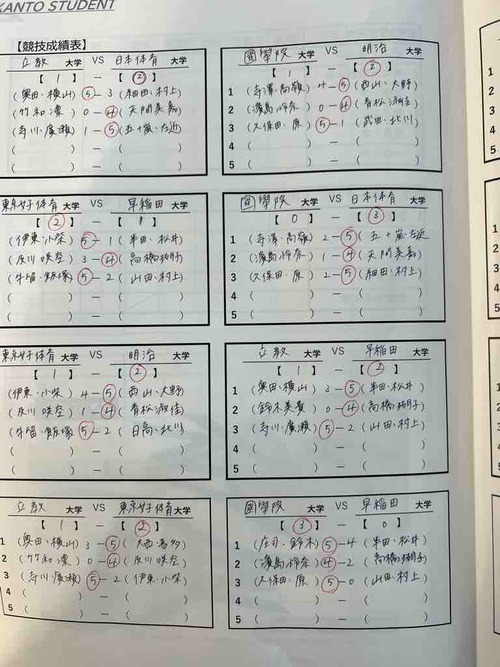 KANTO STUDENT
【競技成績表】
立教 大学 VS 日本体育 大学
【 1 】 － 【 ② 】
(奥田・横山) ⑤－3 (細田・村上)
(竹和凛) 0－④ (天間美嘉)
(寺川・廣瀬) 1－⑤ (五十嵐・左近)
( ) － ( )
( ) － ( )
東京女子体育 大学 VS 早稲田 大学
【 ② 】 － 【 1 】
(伊東・小柴) ⑤－1 (半田・松井)
(及川咲空) 3－④ (高橋瑚子)
(牛留・飯塚) ⑤－2 (山田・村上)
( ) － ( )
( ) － ( )
東京女子体育 大学 VS 明治 大学
【 1 】 － 【 ② 】
(伊東・小柴) 4－⑤ (西山・大野)
(及川咲空) 1－④ (青松淑佳)
(牛留・飯塚) ⑤－2 (日高・北川)
( ) － ( )
( ) － ( )
立教 大学 VS 東京女子体育 大学
【 1 】 － 【 ② 】
1 (奥田・横山) 3－⑤ (大西・)
2 (竹和凛) 0－④ (及川咲空)
3 (寺川・廣瀬) ⑤－2 (伊東・小柴)
4 ( ) － ( )
5 ( ) － ( )
國學院 大学 VS 明治 大学
【 1 】 － 【 ② 】
1 (寺澤・高嶺) 4－⑤ (西山・大野)
2 (濱島怜奈) 0－④ (青松淑佳)
3 (久保田・原) ⑤－1 (武田・北川)
4 ( ) － ( )
5 ( ) － ( )
國學院 大学 VS 日本体育 大学
【 0 】 － 【 ③ 】
1 (寺澤・高嶺) 2－⑤ (五十嵐・左近)
2 (濱島怜奈) 1－④ (天間美嘉)
3 (久保田・原) 2－⑤ (細田・村上)
4 ( ) － ( )
5 ( ) － ( )
立教 大学 VS 早稲田 大学
【 1 】 － 【 ② 】
1 (奥田・横山) 3－⑤ (半田・松井)
2 (鈴木美貴) 0－④ (高橋瑚子)
3 (寺川・廣瀬) ⑤－2 (山田・村上)
4 ( ) － ( )
5 ( ) － ( )
國學院 大学 VS 早稲田 大学
【 ③ 】 － 【 0 】
1 (庄司・鈴木) ⑤－4 (半田・松井)
2 (濱島怜奈) ④－2 (高橋瑚子)
3 (久保田・原) ⑤－0 (山田・村上)
4 ( ) － ( )
5 ( ) － ( )